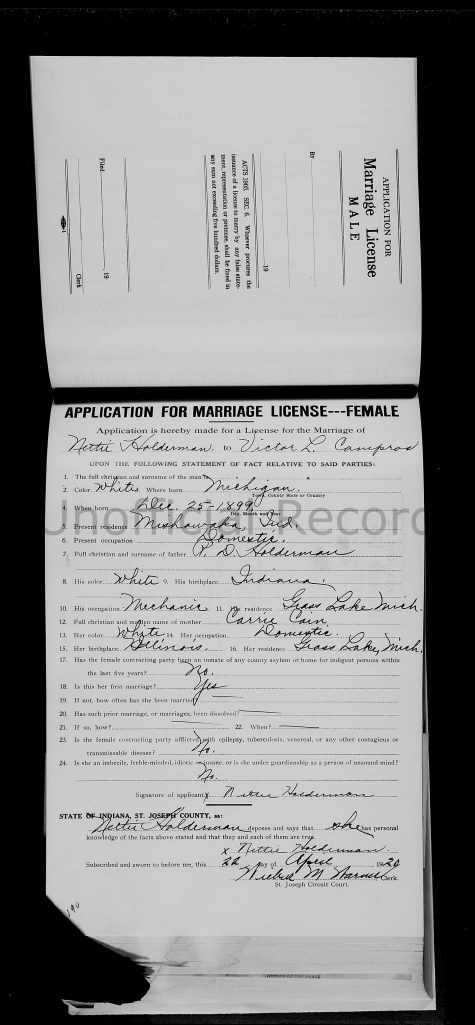 APPLICATION FOR
Marriage License
MALE
By
19
ACTS 1905. SEC. 6. Whoever procures the
issuance of a license to marry by any false state-
ment, representation or pretense, shall be fined in
any sum not exceeding five hundred dollars.
Filed 19
Clerk
APPLICATION FOR MARRIAGE LICENSE---FEMALE
Application is hereby made for a License for the Marriage of
Nettie Holderman to Victor L.
UPON THE FOLLOWING STATEMENT OF FACT RELATIVE TO SAID PARTIES:
1. The full christian and surname of the
2. Color White Where born Michigan.
Town, County State or Country
4. When born Dec. 25-1899
Day, Month and Year
5. Present residence Mishawaka, Ind.
6. Present occupation Domestic.
7. Full christian and surname of father D. Holderman
8. His color White 9. His birthplace Indiana.
10. His occupation Mechanic 11. His residence Grass Lake Mich.
12. Full christian and maiden name of mother Carrie Cain.
13. Her color White 14. Her occupation. Domestic.
15. Her birthplace Illinois. 16. Her residence Grass Lake, Mich.
17. Has the female contracting party been an inmate of any county asylum or home for indigent persons within
the last five years? No.
18. Is this her first marriage? Yes
19. If not, how often has she been married
20. Has such prior marriage, or marriages, been dissolved?
21. If so, how? 22. When?
23. Is the female contracting party afflicted with epilepsy, tuberculosis, venereal, or any other contagious or
transmissible disease? No.
24. Is she an imbecile, feeble-minded, idiotic or insane, or is she under guardianship as a person of unsound mind?
No.
Signature of applicant x Nettie Holderman
STATE OF INDIANA, ST. JOSEPH COUNTY, ss:
Nettie Holderman deposes and says that she has personal
knowledge of the facts above stated and that they and each of them are true.
x Nettie Holderman.
Subscribed and sworn to before me, this 22 day of April 1920
M Clerk
St. Joseph Circuit Court.
190
Unofficial Record